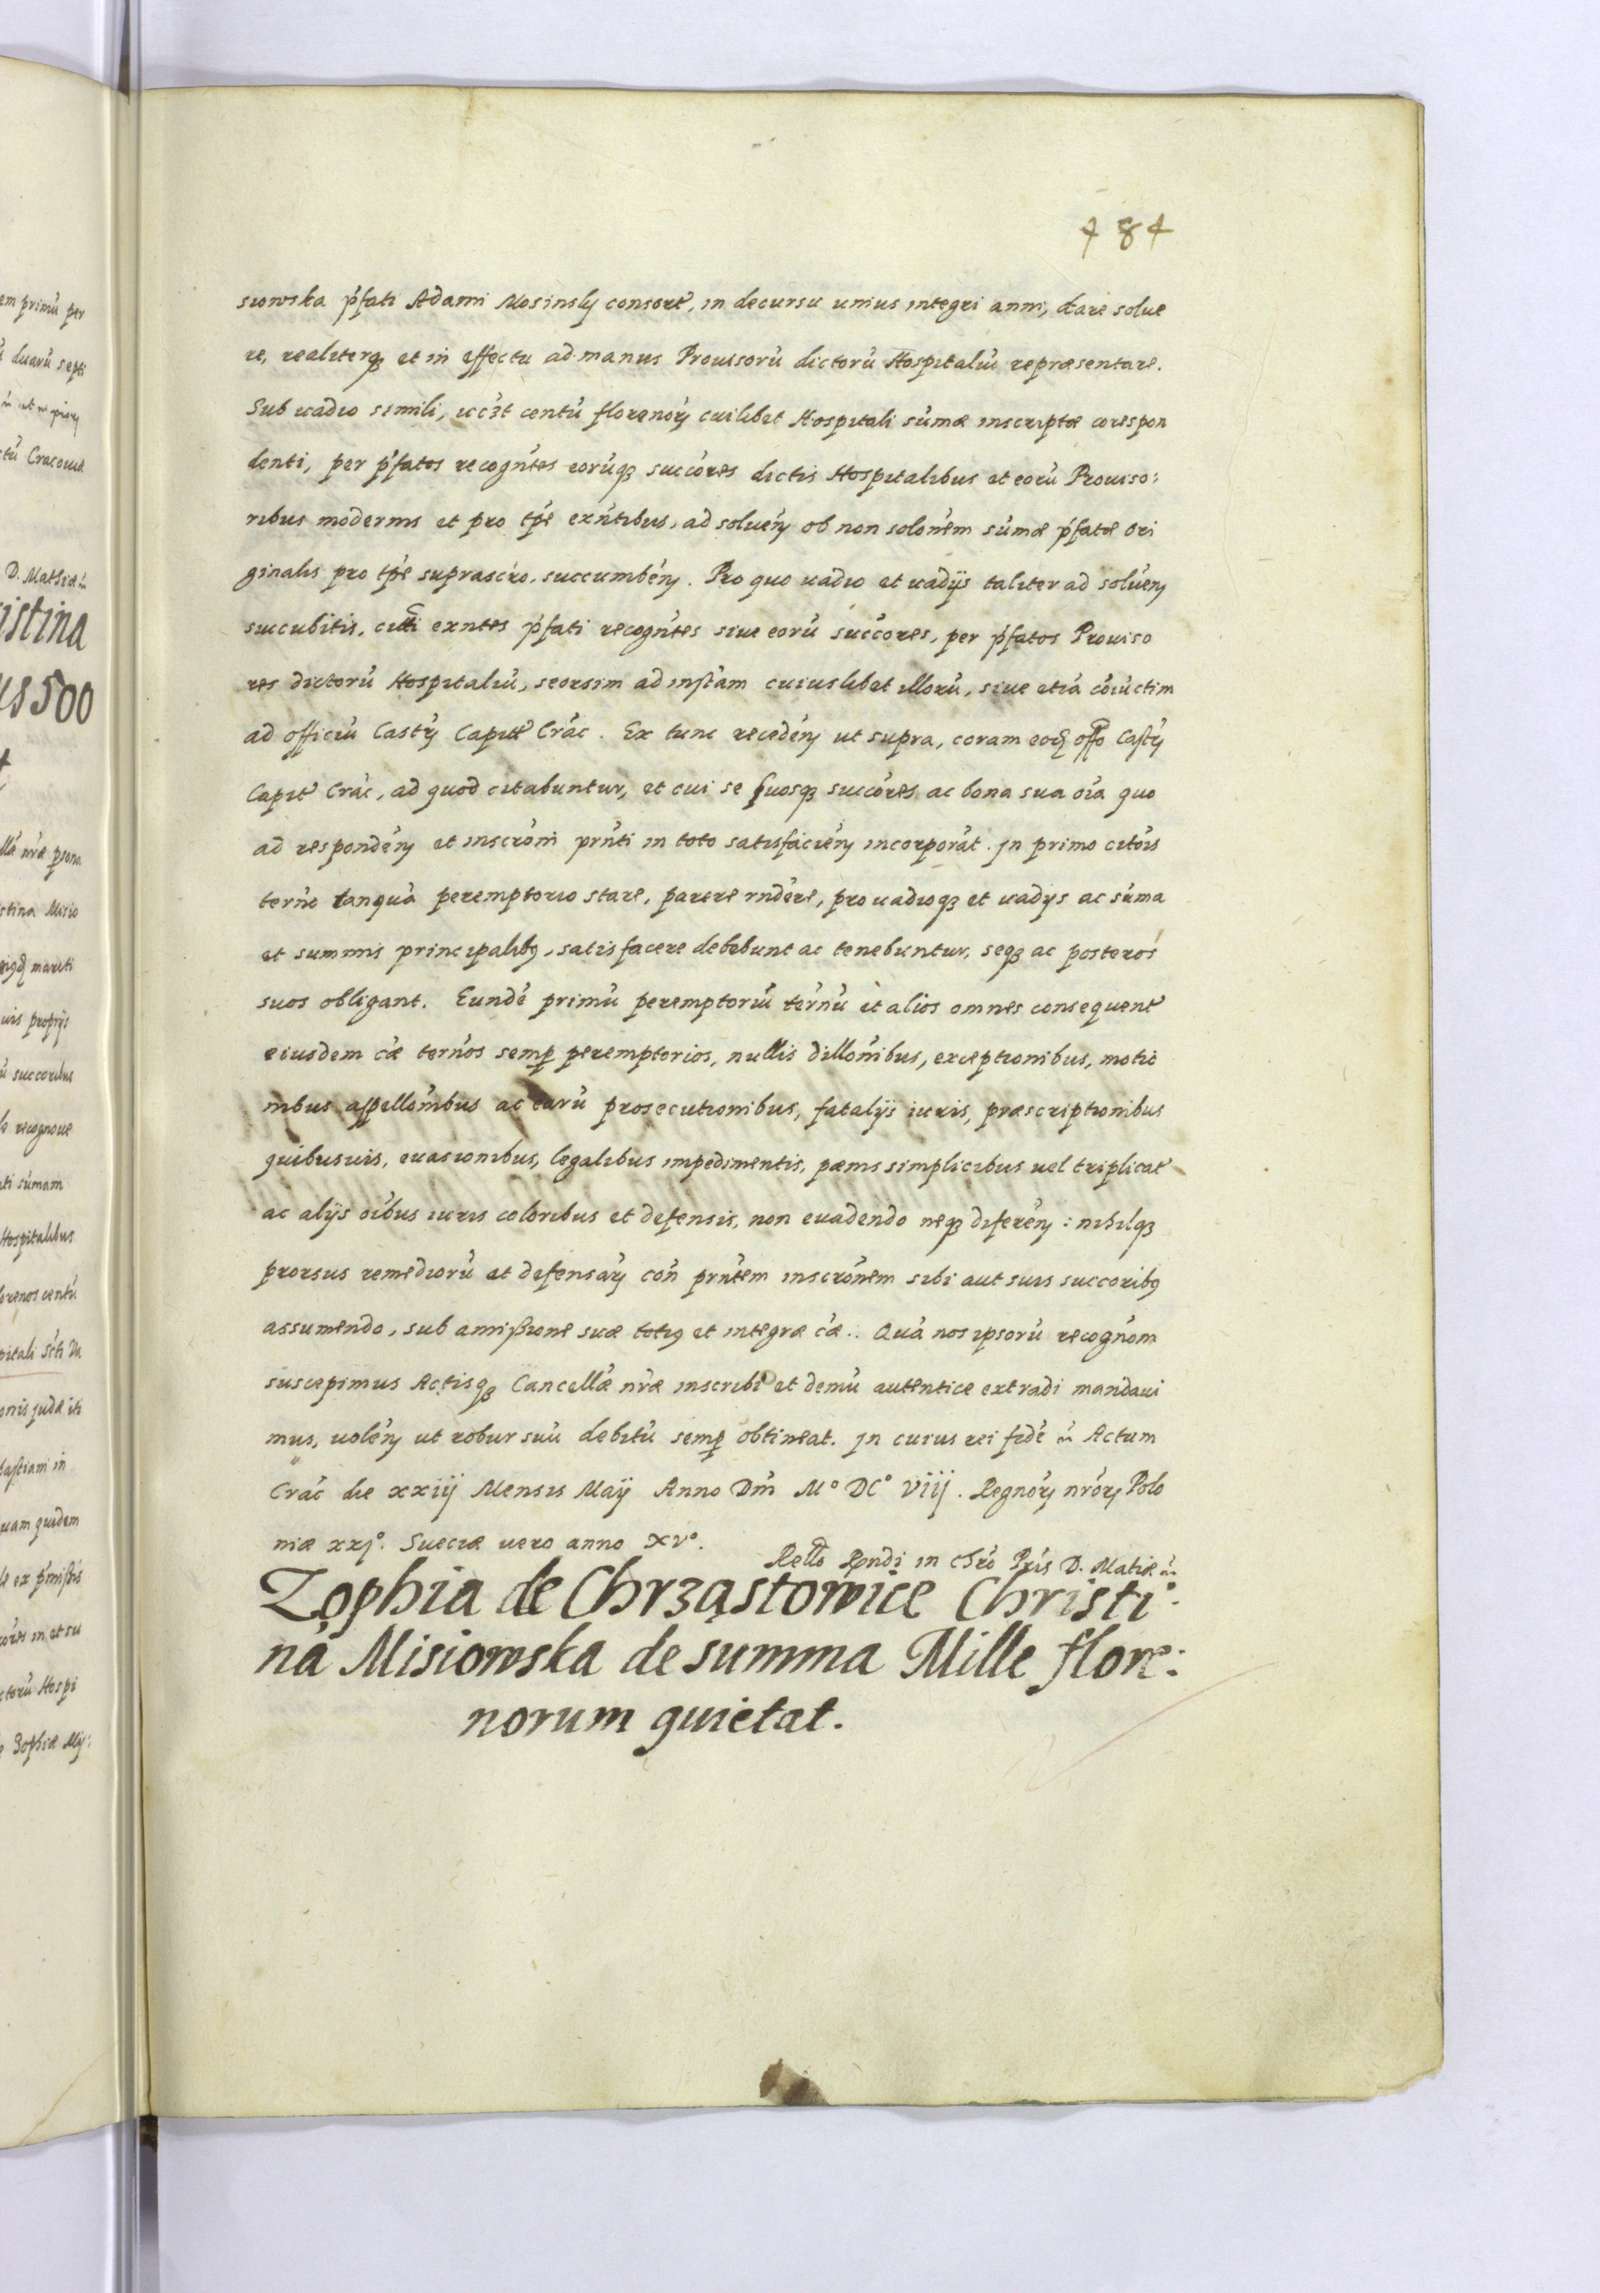 484
siowska p̃fati Adami Mosinsky consorte, in decursu unius integri anni, dare solue
re, realiterq̃ et in effectu ad manus Prouisorũ dictorũ Hospitaliũ repræsentare.
Sub uadio simili, ucʒt centũ florenorꝝ cuilibet Hospitali sũmæ inscriptæ corespon
denti, per p̃fatos recogñtes eorũq̃ succōres dictis Hospitalibus et eorũ Prouiso:
ribus modernis et pro tp̃e exñtibus, ad soluenꝝ ob non solōnem sũmæ p̃fatæ ori
ginalis pro tp̃e suprascr̃o, succumbenꝝ. Pro quo uadio et uadijs taliter ad soluenꝝ
succubitis, citti exntes p̃fati recogñtes siue eorũ succōres, per p̃fatos Prouiso
res dictorũ Hospitaliũ, seorsim ad instãm cuiuslibet illorũ, siue etiã cõiũctim
ad officiũ Castrꝝ Capite Crac̃. Ex tunc recedenꝝ ut supra, coram eoq̃ offo Castrꝝ
Capit Crac̃, ad quod citabuntur, et cui se suosq̃ succōres ac bona sua oĩa quo
ad respondenꝝ et inscrõni prñti in toto satisfacienꝝ incorporãt. Jn primo citõis
terño tanquã peremptorio stare, parere rñdere, pro uadioq̃ et uadijs ac sũma
et summis principalibꝫ, satisfacere debebunt ac tenebuntur, seq̃ ac posteros
suos obligant. Eundẽ primũ peremptoriũ terñũ et alios omnes consequent
eiusdem cæ terños semp̲ peremptorios, nullis dillõnibus, exceptionibus, motio
nibus appellõnibus ac earũ prosecutionibus, fatalijs iuris, præscriptionibus
quibusuis, euasionibus, legalibus impedimentis, pœnis simplicibus uel triplicat
ac alijs oĩbus iuris coloribus et defensis, non euadendo neq̃ diferenꝝ: nihilq̃
prorsus remediorũ et defensarꝝ coñ prñtem inscrõnem sibi aut suis succoribꝫ
assumendo, sub amißione suæ totiꝫ et integræ cæ.. Quã nos ipsorũ recognõm
suscepimus Actisq̃ Cancellæ nr̃æ inscribi et demũ autentice extradi mandaui
mus, uolenꝝ ut robur suũ debitũ semp̲ obtineat. Jn cuius rei fidẽ ñ Actum
Crac̃ die xxiij Mensis Maij Anno Dm̃ M° DC° Viij. Regnorꝝ nr̃orꝝ Polo
niæ xxj°. Sueciæ uero anno XV°.
Rello Rñdi in Chr̃o Pr̃is D. Matiæ ñ
Zophia de Chrząstowice Christi:
na Misiowska de summa Mille flore:
norum quietat.
em primũ per
duarũ septi
ctũ Cracouiæ
D. Mathiæ ñ
istina
us 500
llæ nr̃æ p̲sona
stina Misio
mariti
uis proprijs
succoribus
recognoue
ti sũmam
Hospitalibus
lorenos centũ
pitali Scti
onis Judæ
in
uam quidem
in et su
ctorũ Hospi
Zophiæ My: